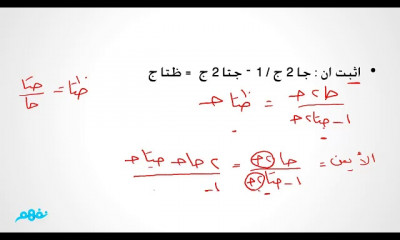 • اثبت ان : جا 2 ج / 1 - جتا 2 ج = ظتا ج
ظتا = جتا / جا
جا ٢ جـ / ١ - جتا ٢ جـ = ظتا جـ
الأيمن = جا ٢ جـ / ١ - جتا ٢ جـ = ٢ جا جـ جتا جـ / ١ -
نفهم